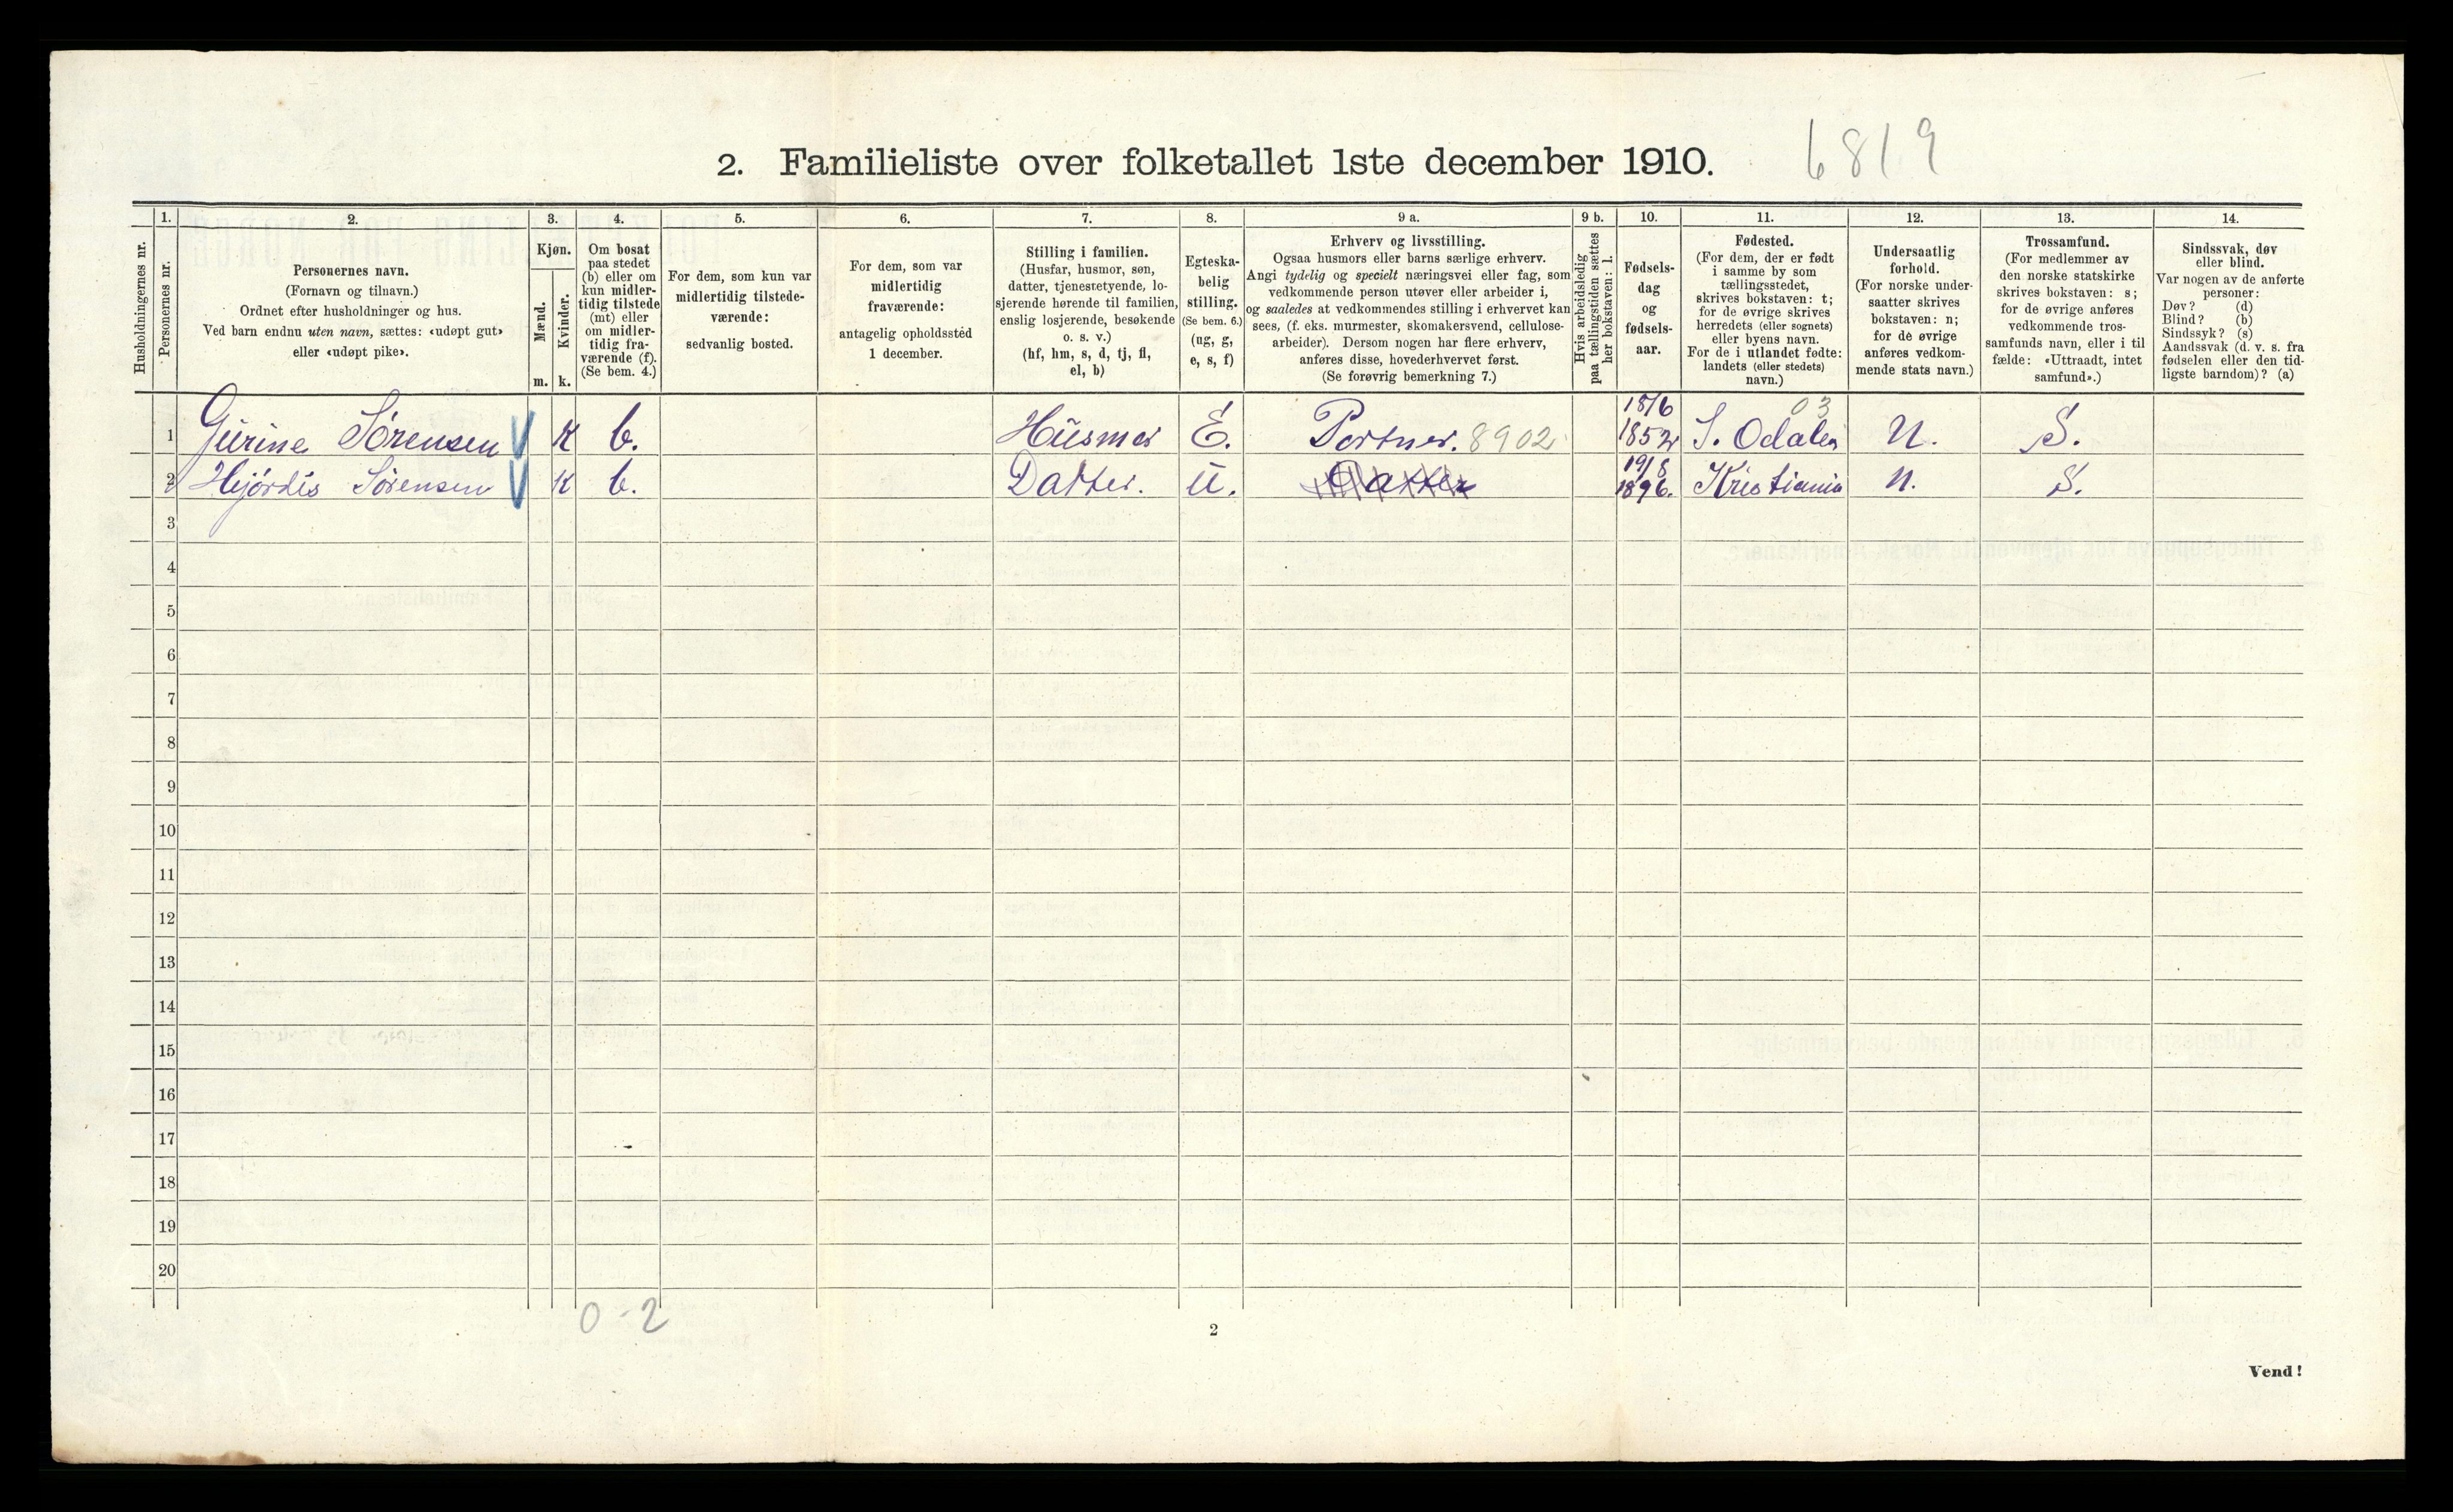 2. Familieliste over folketallet 1ste december 1910.
6819
Husholdningernes nr.
1.
Personernes nr.
2.
Personernes navn.
(Fornavn og tilnavn.)
Ordnet efter husholdninger og hus.
Ved barn endnu uten navn, sættes: «udøpt gut»
eller «udøpt pike».
3.
Kjøn.
Mænd.
Kvinder.
m.
k.
4.
Om bosat
paa stedet
(b) eller om
kun midler-
tidig tilstede
(mt) eller
om midler-
tidig fra-
værende (f).
(Se bem. 4.)
5.
For dem, som kun var
midlertidig tilstede-
værende:
sedvanlig bosted.
6.
For dem, som var
midlertidig
fraværende:
antagelig opholdssted
1 december.
7.
Stilling i familien.
(Husfar, husmor, søn,
datter, tjenestetyende, lo-
sjerende hørende til familien,
enslig losjerende, besøkende
o. s. v.)
(hf, hm, s, d, tj, fl,
el, b)
8.
Egteska-
belig
stilling.
(Se bem. 6.)
(ug, g,
e, s, f)
9 a.
Erhverv og livsstilling.
Ogsaa husmors eller barns særlige erhverv.
Angi tydelig og specielt næringsvei eller fag, som
vedkommende person utøver eller arbeider i,
og saaledes at vedkommendes stilling i erhvervet kan
sees, (f. eks. murmester, skomakersvend, cellulose-
arbeider). Dersom nogen har flere erhverv,
anføres disse, hovederhvervet først.
(Se forøvrig bemerkning 7.)
9 b.
Hvis arbeidsledig
paa tællingstiden sættes
her bokstaven: l.
10.
Fødsels-
dag
og
fødsels-
aar.
11.
Fødested.
(For dem, der er født
i samme by som
tællingsstedet,
skrives bokstaven: t;
for de øvrige skrives
herredets (eller sognets)
eller byens navn.
For de i utlandet fødte:
landets (eller stedets)
navn.)
12.
Undersaatlig
forhold.
(For norske under-
saatter skrives
bokstaven: n;
for de øvrige
anføres vedkom-
mende stats navn.)
13.
Trossamfund.
(For medlemmer av
den norske statskirke
skrives bokstaven: s;
for de øvrige anføres
vedkommende tros-
samfunds navn, eller i til
fælde: «Uttraadt, intet
samfund».)
14.
Sindssvak, døv
eller blind.
Var nogen av de anførte
personer:
Døv? (d)
Blind? (b)
Sindssyk? (s)
Aandssvak (d. v. s. fra
fødselen eller den tid-
ligste barndom)? (a)
1 Gurine Sørensen K b. Husmor E. Portner. 8902 18/6 1852 S. Odalen 03 N. S.
2 Hjórdis Sørensen K b. Datter. U. Datter 19/8 1896. Kristiania N. S.
3
4
5
6
7
8
9
10
11
12
13
14
15
16
17
18
19
20
0-2
2
Vend!